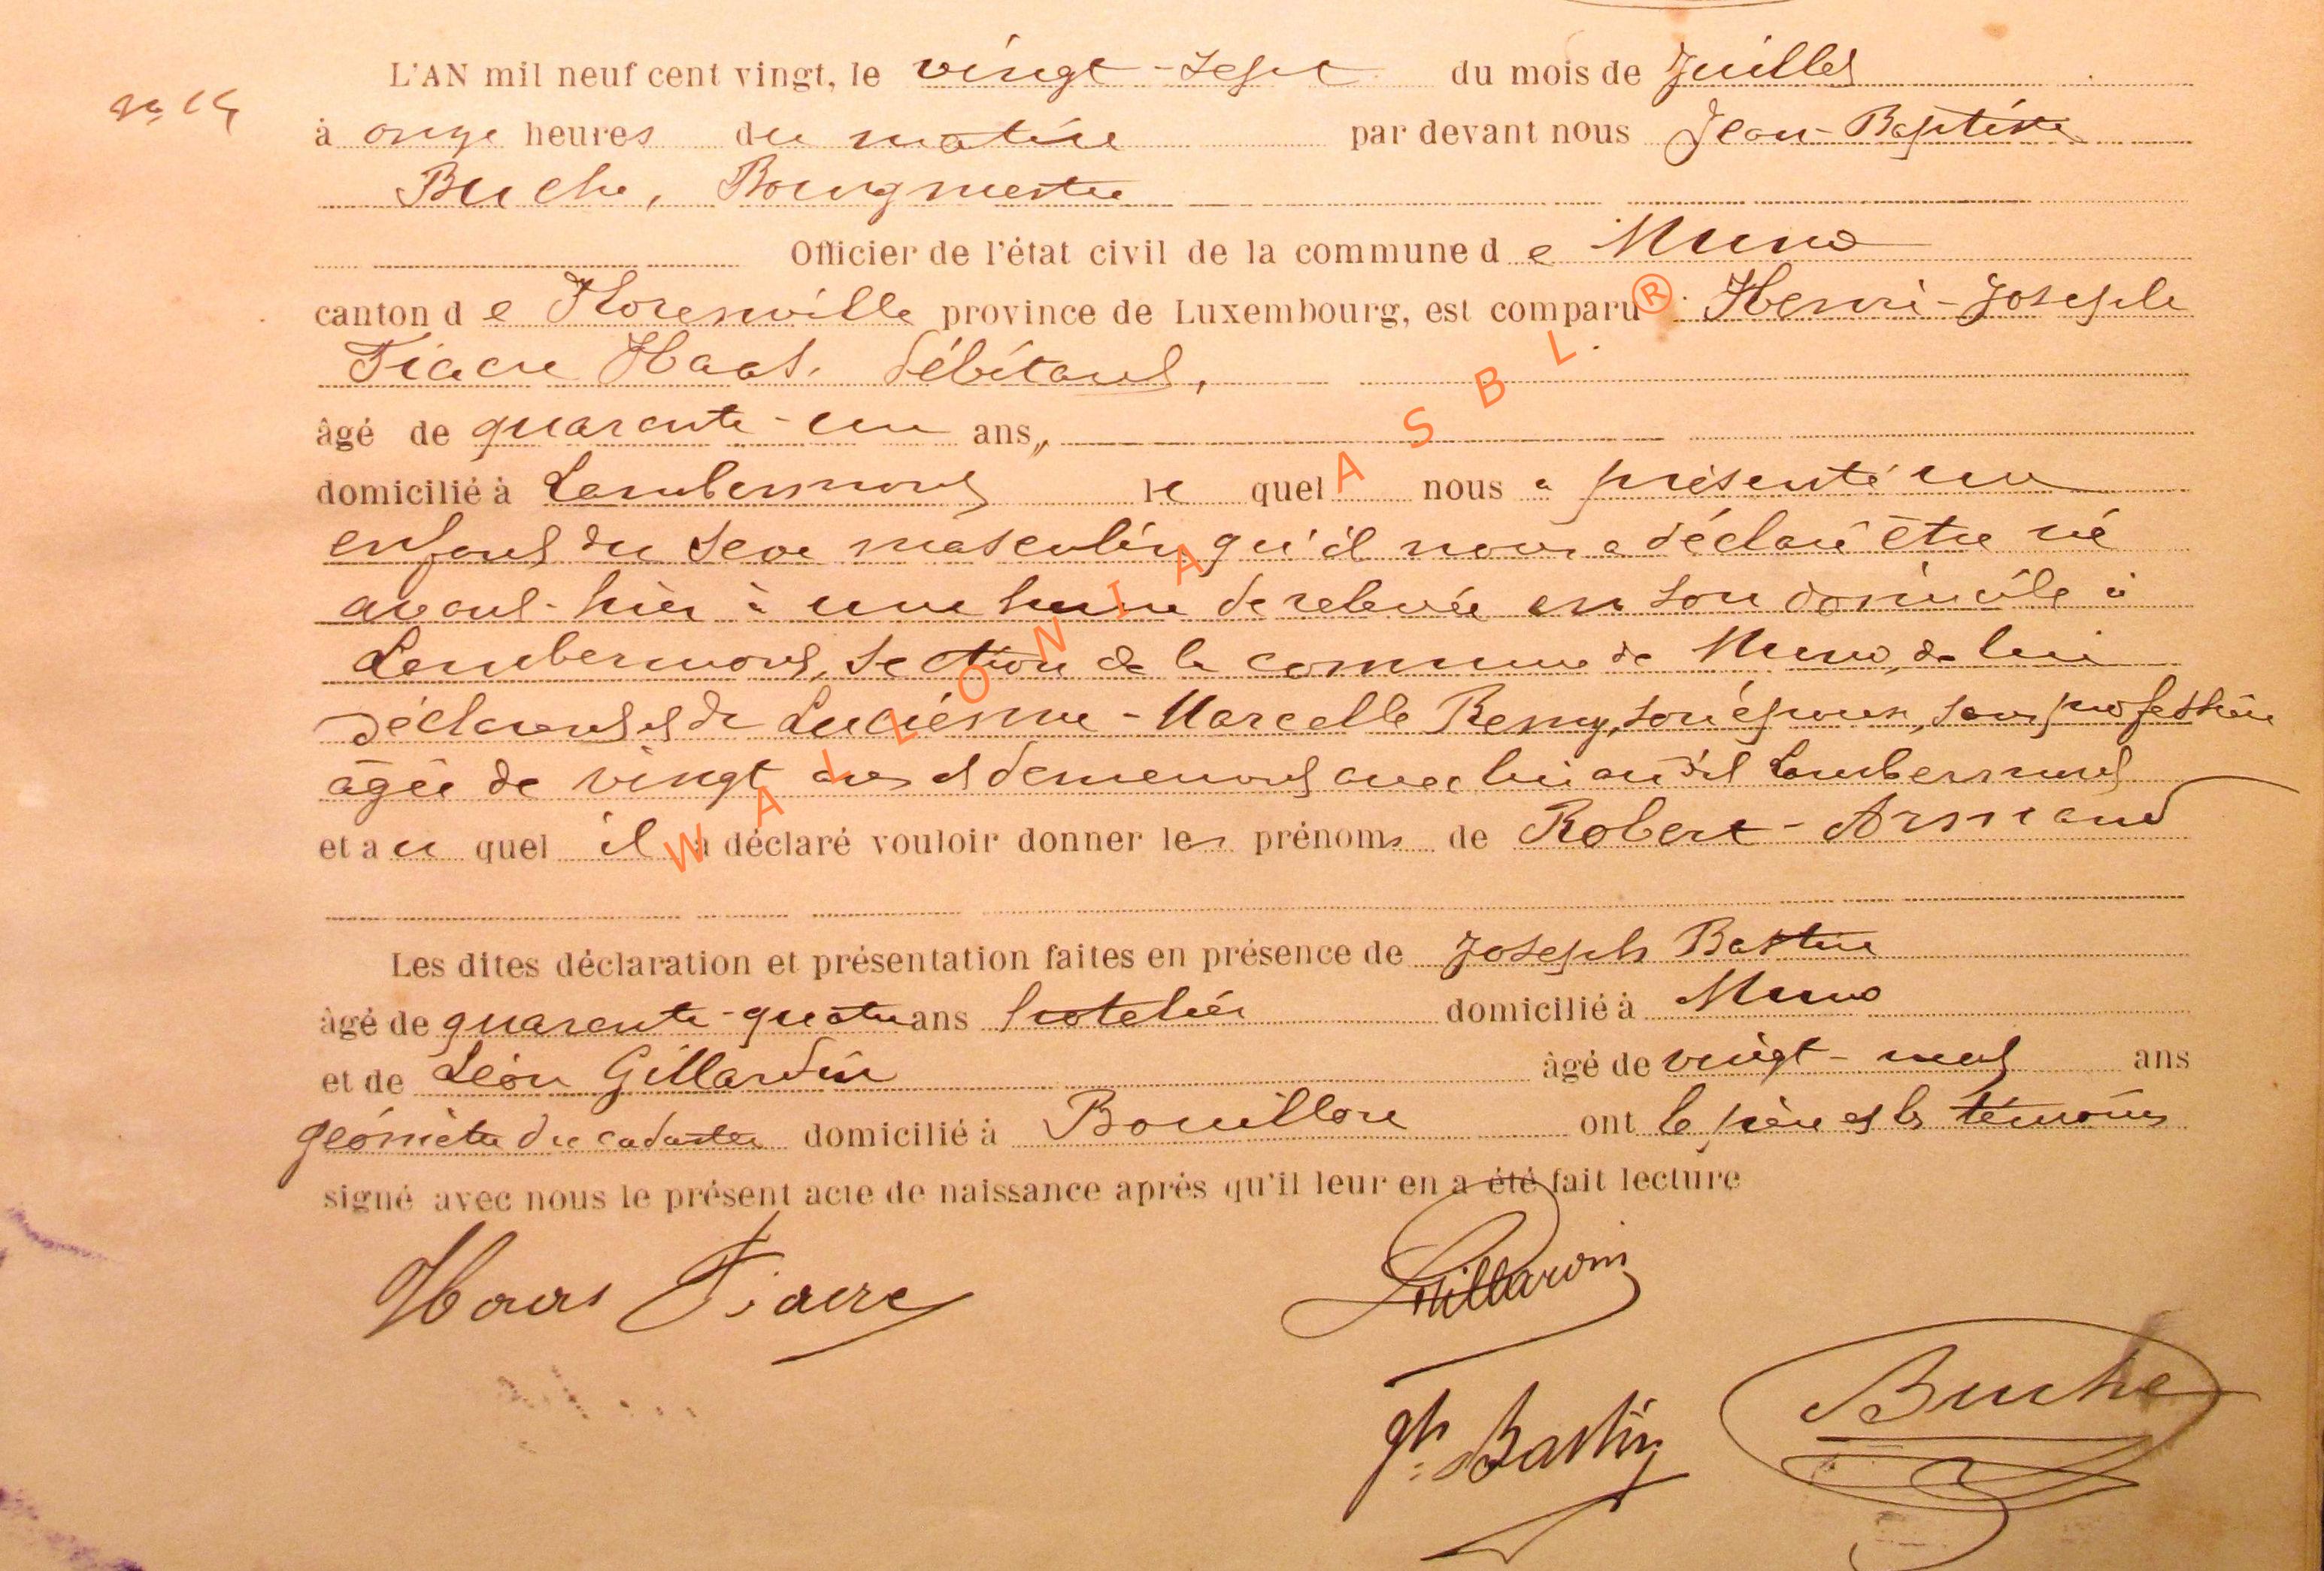 L'AN mil neuf cent vingt, le vingt-sept du mois de Juillet
à onze heures du matin par devant nous Jean-Baptiste
Buche, Bourgmestre
Officier de l'état civil de la commune d e Muno
canton d e Florenville province de Luxembourg, est comparu Henri-Joseph
Fiacre Haas, débitant,
âgé de quarante-un ans,
domicilié à Lambermont le quel nous a présenté un
enfant du sexe masculin qu'il nous a déclaré être né
avant-hier à une heure de relevée en son domicile à
Lambermont, section de la commune de Muno, de lui
déclarant et de Lucienne-Marcelle Remy, son épouse, sans profession
âgée de vingt ans et demeurant avec lui au dit Lambermont
et a u quel il a déclaré vouloir donner les prénoms de Robert-Armand
Les dites déclaration et présentation faites en présence de Joseph Bastin
âgé de quarante-quatre ans hotelier domicilié à Muno
et de Léon Gillardin âgé de vingt-neuf ans
géomètre du cadastre domicilié à Bouillon ont le père et les témoins
signé avec nous le présent acte de naissance après qu'il leur en a été fait lecture
Haas Fiacre
Gillardin
Jh Bastin
Buche
WALLONIA ASBL ®